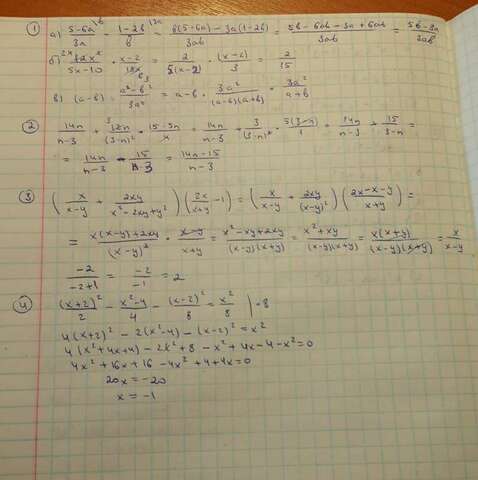 1 а) (5-6a)/3a - (1-2b)/b = (b(5-6a) - 3a(1-2b))/3ab = (5b-6ab-3a+6ab)/3ab = (5b-3a)/3ab
б) x²/(5x-10) · (x-2)/ = 2/(5(x-2)) · (x-2)/3 = 2/15
в) (a-b) : (a²-b²)/3a² = a-b · 3a²/((a-b)(a+b)) = 3a²/(a+b)
2 14n/(n-3) + /(3-n)² · (15-5n)/ = 14n/(n-3) + 3/(3-n)² · 5(3-n)/1 = 14n/(n-3) + 15/(3-n) =
= 14n/(n-3) - 15/(n-3) = (14n-15)/(n-3)
3 (x/(x-y) + 2xy/(x²-2xy+y²)) (2x/(x+y) - 1) = (x/(x-y) + 2xy/(x-y)²) ((2x-x-y)/(x+y)) =
= (x(x-y)+2xy)/(x-y)² · (x-y)/(x+y) = (x²-xy+2xy)/((x-y)(x+y)) = (x²+xy)/((x-y)(x+y)) = x(x+y)/((x-y)(x+y)) = x/(x-y)
-2/(-2+1) = -2/-1 = 2
4 (x+2)²/2 - (x²-4)/4 - (x-2)²/8 = x²/8 | ·8
4(x+2)² - 2(x²-4) - (x-2)² = x²
4(x²+4x+4) - 2x²+8 - x²+4x-4-x²=0
4x²+16x+16 -4x²+4+4x=0
20x = -20
x = -1